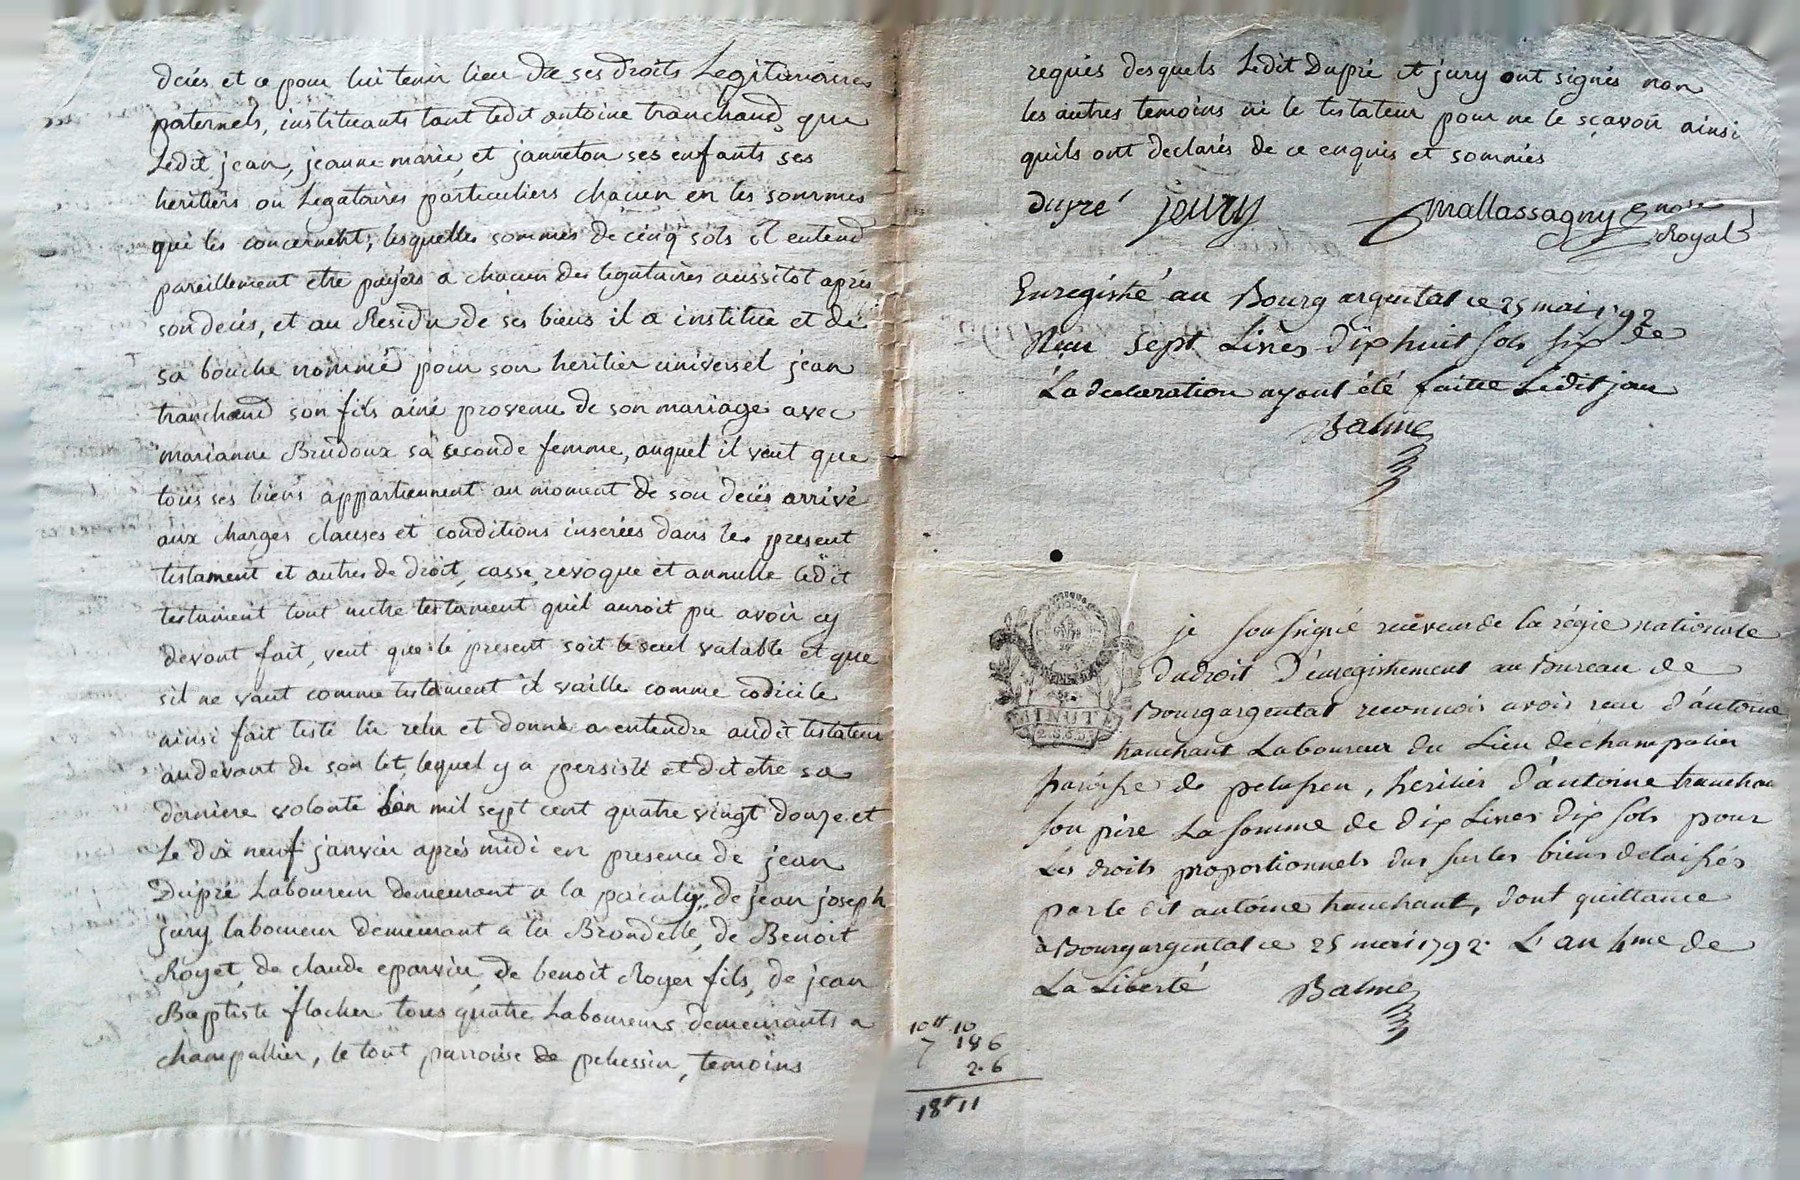 deces et ce pour lui tenir lieu de ses droits Legitimaires
paternels, instituants tant ledit antoine tranchand que
Ledit jean, jeanne marie, et janneton ses enfants ses
heritiers ou Legataires particuliers chacun en les sommes
qui les concernent, lesquelles sommes de cinq sols il entend
pareillement etre payées a chacun des legataires aussitot après
son deces, et au Residu de ses biens il a institué et de
sa bouche nommé pour son heritier universel jean
tranchand son fils ainé provenu de son mariage avec
marianne Brudoux sa seconde femme, auquel il veut que
tous ses biens appartiennent au moment de son deces arrivé
aux charges clauses et conditions inserées dans le present
testament et autres de droit, casse, revoque et annulle ledit
testament tout autre testament quil auroit pu avoir cy
devant fait, veut que le present soit le seul valable et que
sil ne vaut comme testament il vaille comme codicile
ainsi fait testé lu relu et donné a entendre audit testateur
audevant de son lit, lequel y a persisté et dit etre sa
derniere volonté Lan mil sept cent quatre vingt douze et
Le dix neuf janvier après midi en presence de jean
Dupré Laboureur demeurant a la pacaly, de jean joseph
jury laboureur demeurant a la Brondelle, de Benoit
Royet, de claude eparvier, de benoit Royer fils, de jean
Baptiste flacher tous quatre Laboureurs demeurants a
champallier, le tout parroise de pelussin, temoins
requis desquels Ledit Dupré et jury ont signés non
les autres temoins ni le testateur pour ne le sçavoir ainsi
quils ont declarés de ce enquis et sommés
dupré jeury Mallassagny noire
Royal
Enregistré au Bourg argental ce 25 mai 1792
Reçu sept Livres dix huit sols six de
La declaration ayant été faitte Ledit jour
Balme
je soussigné receveur de la régie nationale
du droit d'enregistrement au Bureau de
Bourgargental reconnois avoir reçu d'antoine
MINUTE
tranchant Laboureur du Lieu de champalier
paroisse de pelussin, héritier d'antoine tranchan
son père La somme de dix Livres dix sols pour
Les droits proportionnels dus sur les biens delaissés
par le dit antoine tranchant, dont quittance
à Bourgargental ce 25 mai 1792. L'an 4me de
La Liberté Balme
10tt 10
7 18 6
2.6
18tt 11